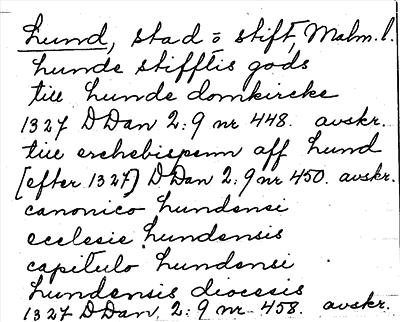 Lund, stad o stift, Malm. l.
Lunde stifftis gods
till Lunde domkircke
1327 D Dan 2:9 nr 448. avskr.
till erchebispenn aff Lund
[efter 1327] D Dan 2:9 nr 450. avskr.
canonico Lundensi
ecclesie Lundensis
capitulo Lundensi
Lundensis diocesis
1327 D Dan 2:9 nr 458. avskr.